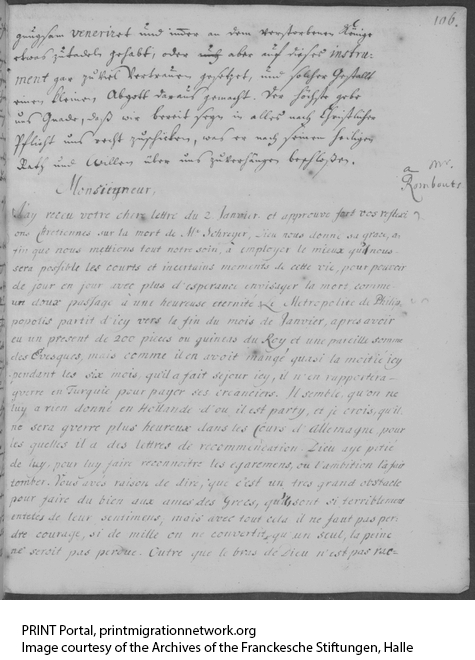 106.
gnugsam veneriret und immer an dem verstorbenen Könige
etwas zu tadeln gehabt, oder auch aber auf dieses instru-
ment gar zu viel Vertrauen gesetzet, und solcher Gestalt
einen kleinen Abgott daraus gemacht. Der höchste gebe
uns Gnade, daß wir bereit seyn in alles nach Christlicher
Pflicht uns recht zuschicken, was er nach seinem heiligen
Rath und Willen über uns zuverhängen beschloßen.
a Mr.
Rombouts
Monsieigneur,
J'ay receu votre chere lettre du 2 Janvier et approuve fort vos reflexi
ons Chrêtiennes, sur la mort de Mr Schreyer, Dieu nous donne sa grace, a
fin que nous mettions tout notre soin, à employer le mieux qu'il nous
sera possible les courts et incertains moments de cette vie, pour pouvoir
de jour en jour avec plus d'esperance envisager la mort comme
un doux passage à une heureuse eternité. Le Metropolite de Philip
popolis partit d'icy vers la fin du mois de Janvier, apres avoir
eu un present de 200 pieces ou guineas du Roy et une pareille somme
des Evesques, mais comme il en avoit mangé quasi la moitie icy
pendant les six mois, qu'il a fait sejour icy, il n'en rapportera
gverre en Turquie pour payer ses creanciers. Il semble, qu'on ne
luy a rien donné en Hollande d'ou il est party, et je crois, qu'il
ne sera gverre plus heureux dans les Cours d'Allemagne, pour
les quelles il a des lettres de recommendation. Dieu aye pitié
de luy, pour luy faire reconnoitre les egaremens, où l'ambition l'a fait
tomber. Vous avés raison de dire, que c'est un tres grand obstacle
pour faire du bien aux ames des Grecs, qu'ils sont si terriblement
entetés de leur sentimens, mais avec tout cela il ne faut pas per-
dre courage, si de mille on ne convertit, qu'un seul, la peine
ne seroit pas perdue. Outre que le bras de Dieu n'est pas rac-
PRINT Portal, printmigrationnetwork.org
Image courtesy of the Archives of the Franckesche Stiftungen, Halle